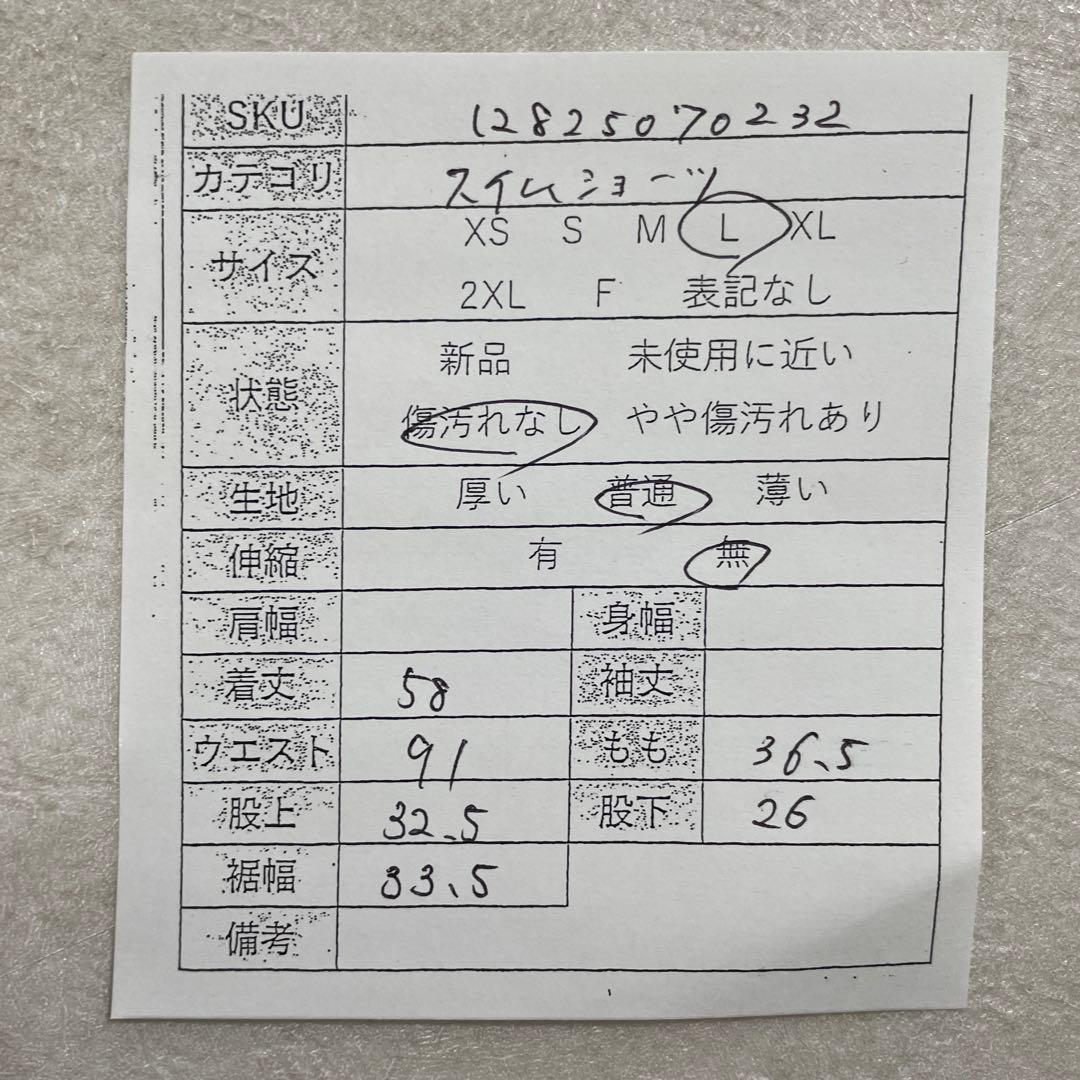 SKU 12825070232
カテゴリ スイムショーツ
サイズ XS S M L XL
2XL F 表記なし
状態 新品 未使用に近い
傷汚れなし やや傷汚れあり
生地 厚い 普通 薄い
伸縮 有 無
肩幅 身幅
着丈 58 袖丈
ウエスト 91 もも 36.5
股上 32.5 股下 26
裾幅 33.5
備考